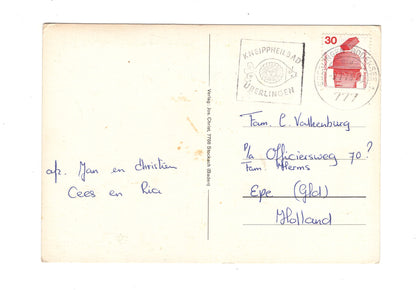 KNEIPPHEILBAD
ÜBERLINGEN
30
777
Verlag: Jos. Christ, 7768 Stockach (Baden)
afz. Jan en Christien
Cees en Ria
Fam. C. Valkenburg
P/a Officiersweg 70?
Fam. Herms
Epe (Gld)
Holland